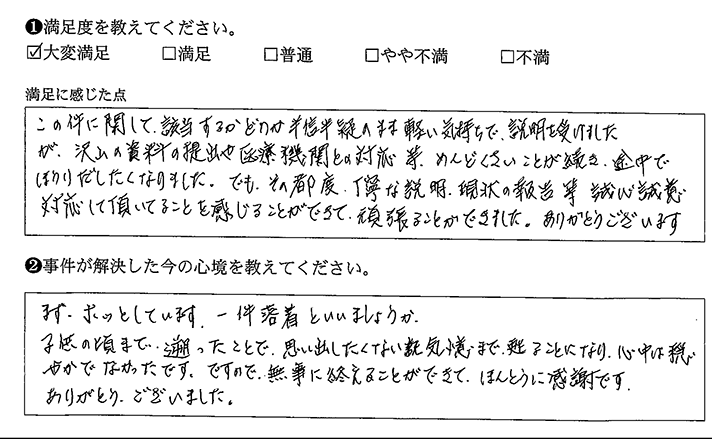 ❶満足度を教えてください。
☑大変満足 □満足 □普通 □やや不満 □不満
満足に感じた点
この件に関して、該当するかどうか半信半疑のまま軽い気持ちで、説明を受けました
が、沢山の資料の提出や医療機関との対応等、めんどくさいことが続き、途中で
ほうりだしたくなりました。でも、その都度、丁寧な説明、現状の報告等誠心誠意
対応して頂いてることを感じることができて、頑張ることができました。ありがとうございます
❷事件が解決した今の心境を教えてください。
まず、ホッとしています。一件落着といいましょうか。
子供の頃まで、遡ったことで、思い出したくない記憶まで、甦ることになり、心中は穏
やかでなかったです。ですので、無事に終えることができて、ほんとうに感謝です。
ありがとう、ございました。